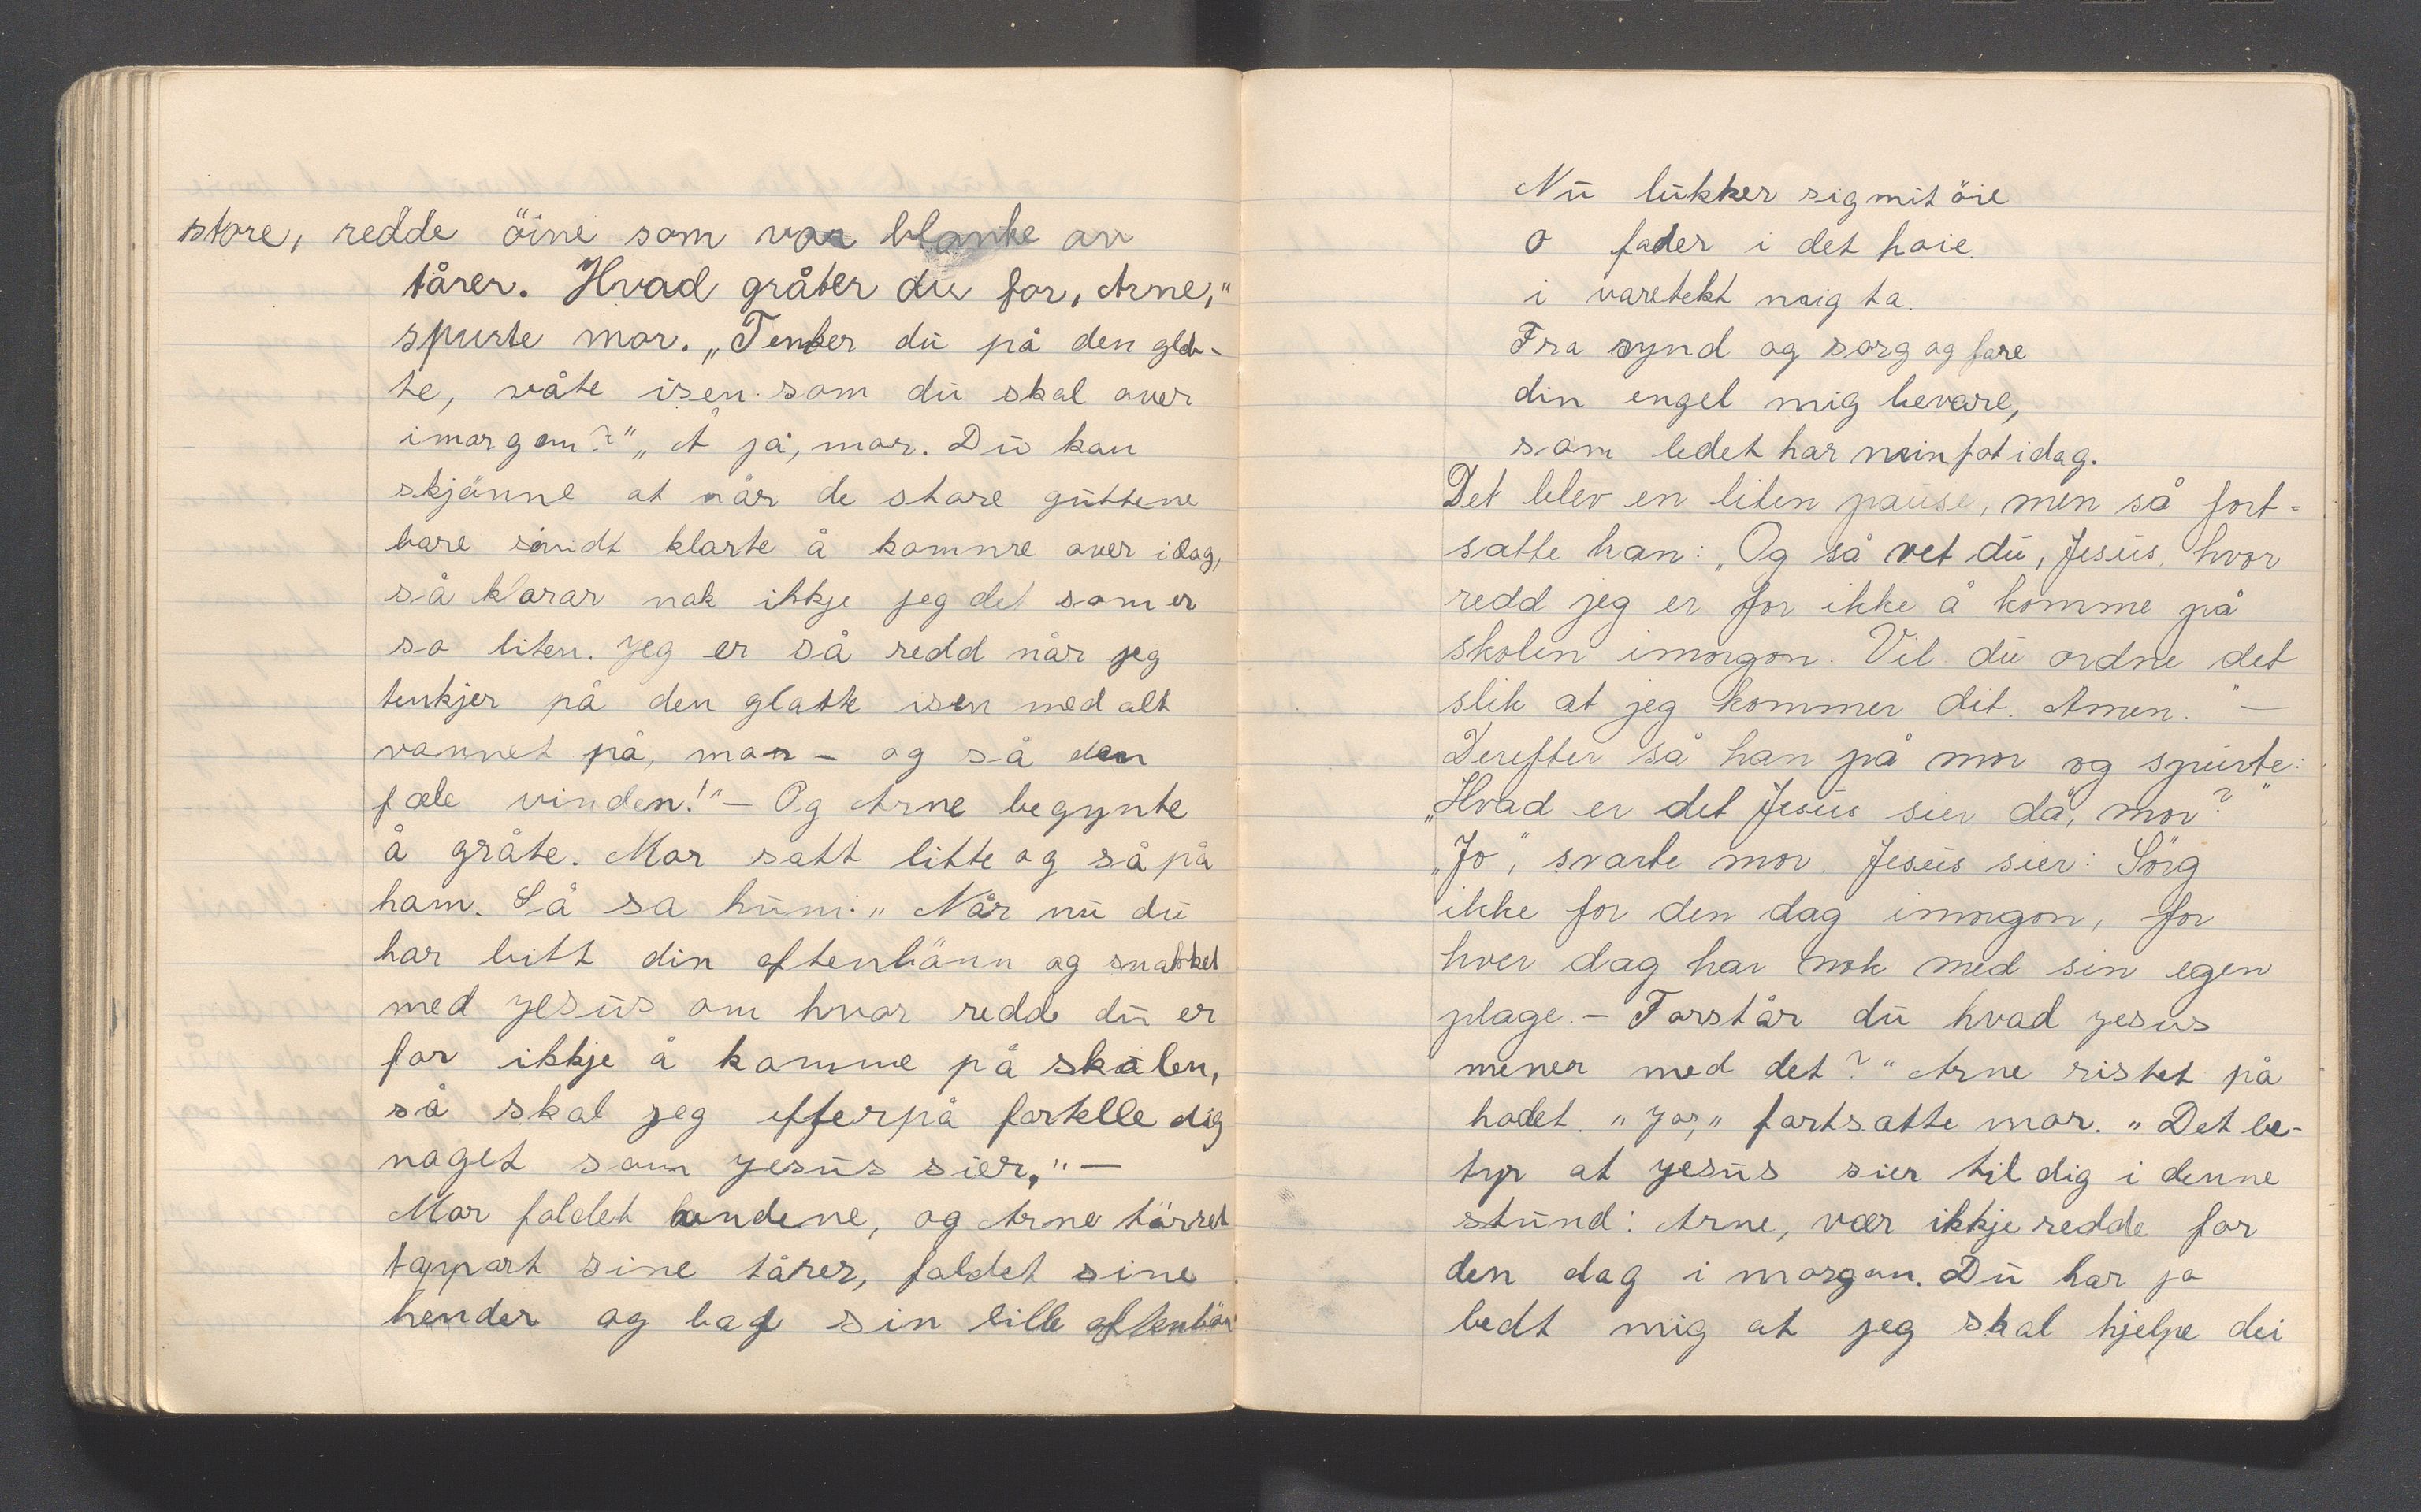 store, redde öine som var blanke av
tårer. Hvad gråter du for, Arne,"
spurte mor. „Tenker du på den glat-
te, våte isen som du skal over
imorgon?" „Å ja, mor. Du kan
skjönne at når de store guttene
bare såvidt klarte å komme over idag,
så klarar nok ikkje jeg det som er
so liten. Jeg er så redd når jeg
tenkjer på den glatte isen med alt
vannet på, mor – og så den
fæle vinden!" – Og Arne begynte
å gråte. Mor satt litte og så på
ham. Så sa hun: „Når nu du
har bitt din aftenbönn og snakket
med Jesus om hvor redde du er
for ikkje å komme på skolen,
så skal jeg efterpå fortelle dig
noget som Jesus sier." –
Mor foldet hendene, og Arne törret
tappart sine tårer, foldet sine
hender og bad sin lille aftenbön
Nu lukker sig mit öie
o fader i det hoie.
i varetekt mig ta.
Fra synd og sorg og fare
din engel mig bevare,
som ledet har min fot idag.
Det blev en liten pause, men så fort-
satte han: „Og så vet du, Jesus, hvor
redd jeg er for ikke å komme på
skolen imorgon. Vil du ordne det
slik at jeg kommer dit. Amen." –
Derefter så han på mor og spurte:
„Hvad er det Jesus sier då, mor?"
„Jo", svarte mor. Jesus sier: Sörg
ikke for den dag imorgon, for
hver dag har nok med sin egen
plage. – Forstår du hvad Jesus
mener med det?" Arne ristet på
hodet. „Jo," fortsatte mor. „Det be-
tyr at Jesus sier til dig i denne
stund: Arne, vær ikkje redde for
den dag i morgon. Du har jo
bedt mig at jeg skal hjelpe dei